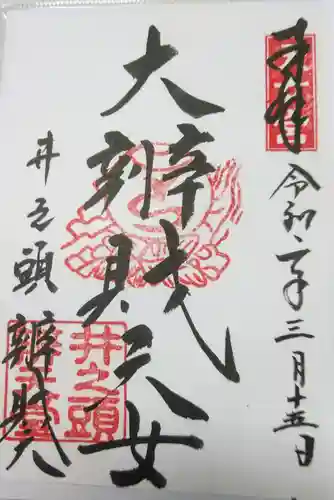 奉拝
令和二年三月十五日
大辨財天女
井之頭
辨財天
井之頭
辨財天